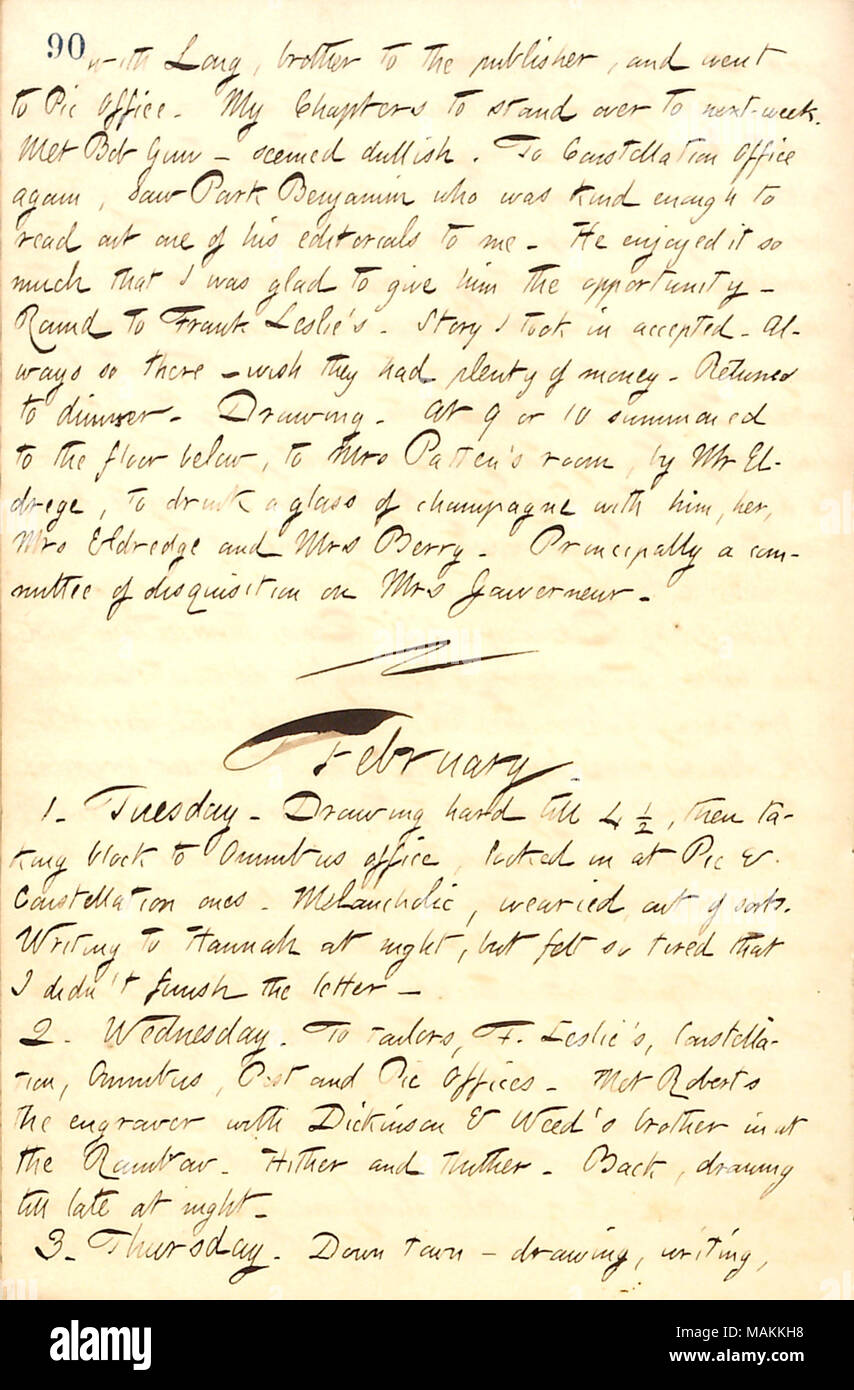 90
with Long, brother to the publisher, and went
to Pic Office. My Chapters to stand over to next-week.
Met Bob Gun — seemed dullish. To Constellation Office
again, saw Park Benjamin who was kind enough to
read out one of his editorials to me. He enjoyed it so
much that I was glad to give him the opportunity —
Round to Frank Leslie's. Story I took in accepted. Al-
ways so there — wish they had plenty of money. Returned
to dinner. Drawing. At 9 or 10 summoned
to the floor below, to Mrs Patten's room, by Mr El-
drege, to drink a glass of champagne with him, her,
Mrs Eldredge and Mrs Berry. Principally a com-
mittee of disquisition on Mrs Gouverneur.
February.
1. Tuesday. Drawing hard till 4 ½, then ta-
king block to Omnibus office, looked in at Pic &
Constellation ones. Melancholic, wearied, out of sorts.
Writing to Hannah at night, but felt so tired that
I didn't finish the letter —
2. Wednesday. To tailors, F. Leslie's, Constella-
tion, Omnibus, Post and Pic Offices. Met Roberts
the engraver with Dickinson & Weed's brother in at
the Rainbow. Hither and thither. Back, drawing
till late at night.
3. Thursday. Down town — drawing, writing,
alamy
Image ID: MAKKH8
www.alamy.com